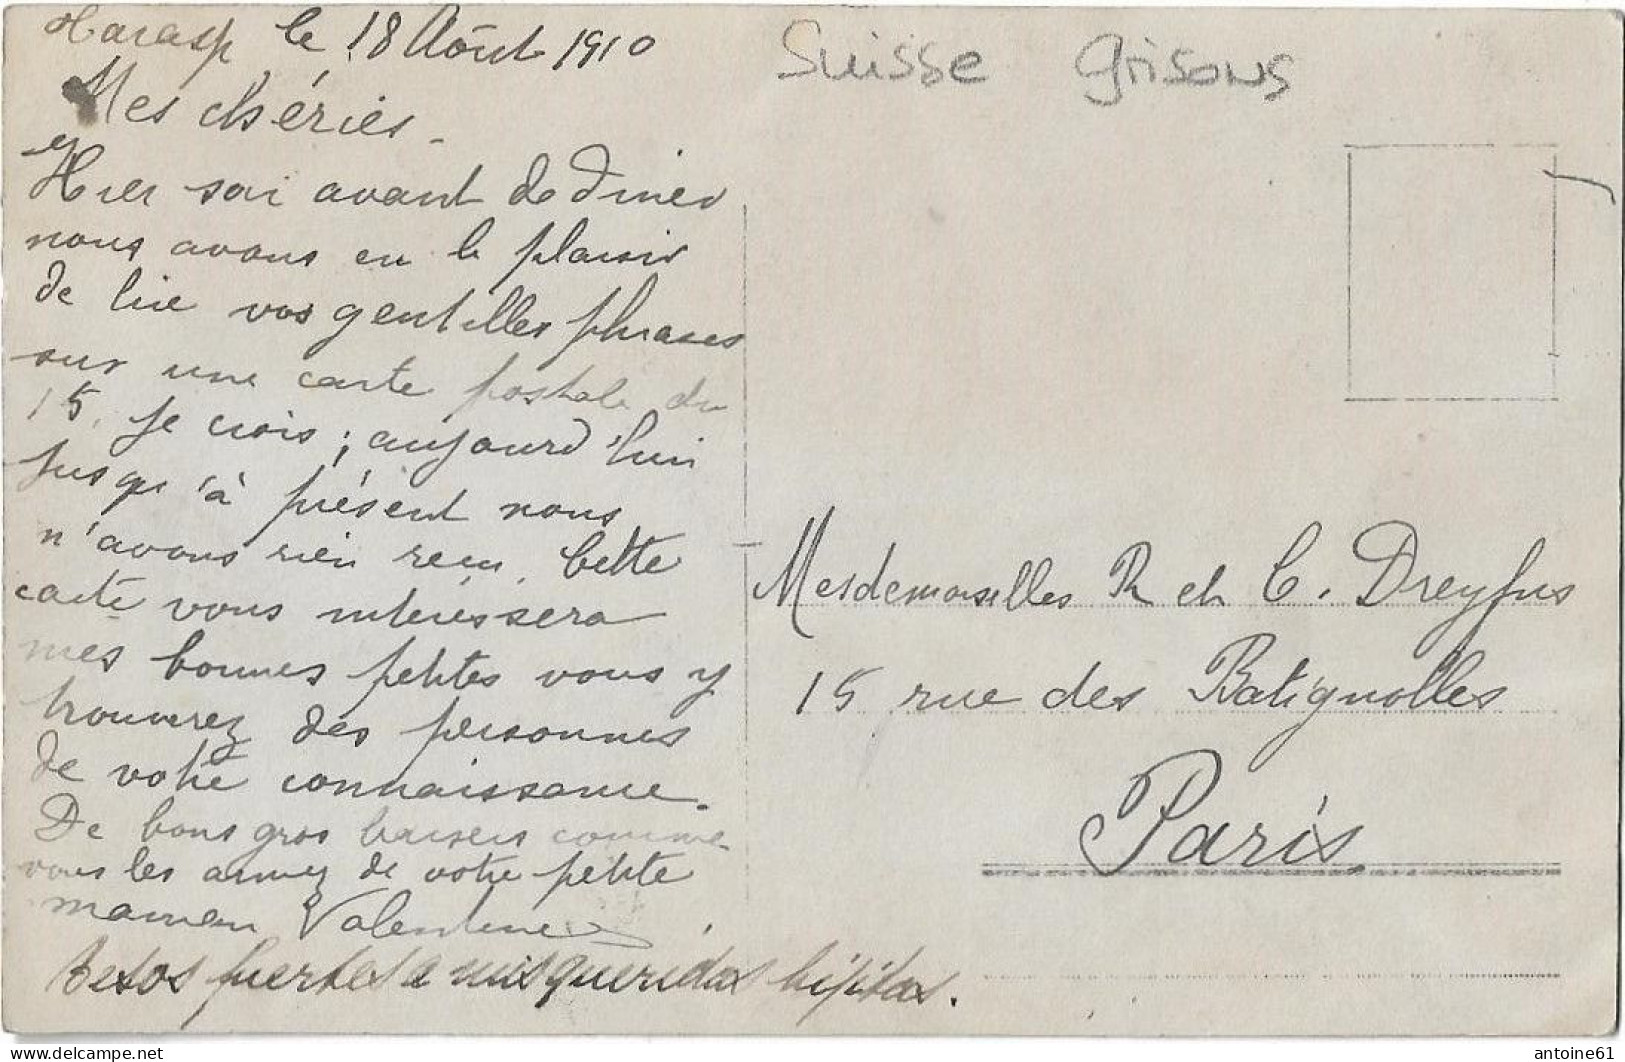 Tarasp le 18 Août 1910
Mes chéries.
Hier soir avant de diner
nous avons eu le plaisir
de lire vos gentilles phrases
sur une carte postale du
15, je crois; aujourd'hui
jusqu'à présent nous
n'avons rien reçu. Cette
carte vous intéressera
mes bonnes petites vous y
trouverez des personnes
de votre connaissance.
De bons gros baisers comme
vous les aimez de votre petite
maman Valentine
Besos fuertes a mis queridas hijitas.
Suisse Grisons
Mesdemoiselles R et C. Dreyfus
15 rue des Batignolles
Paris
delcampe.net
antoine61